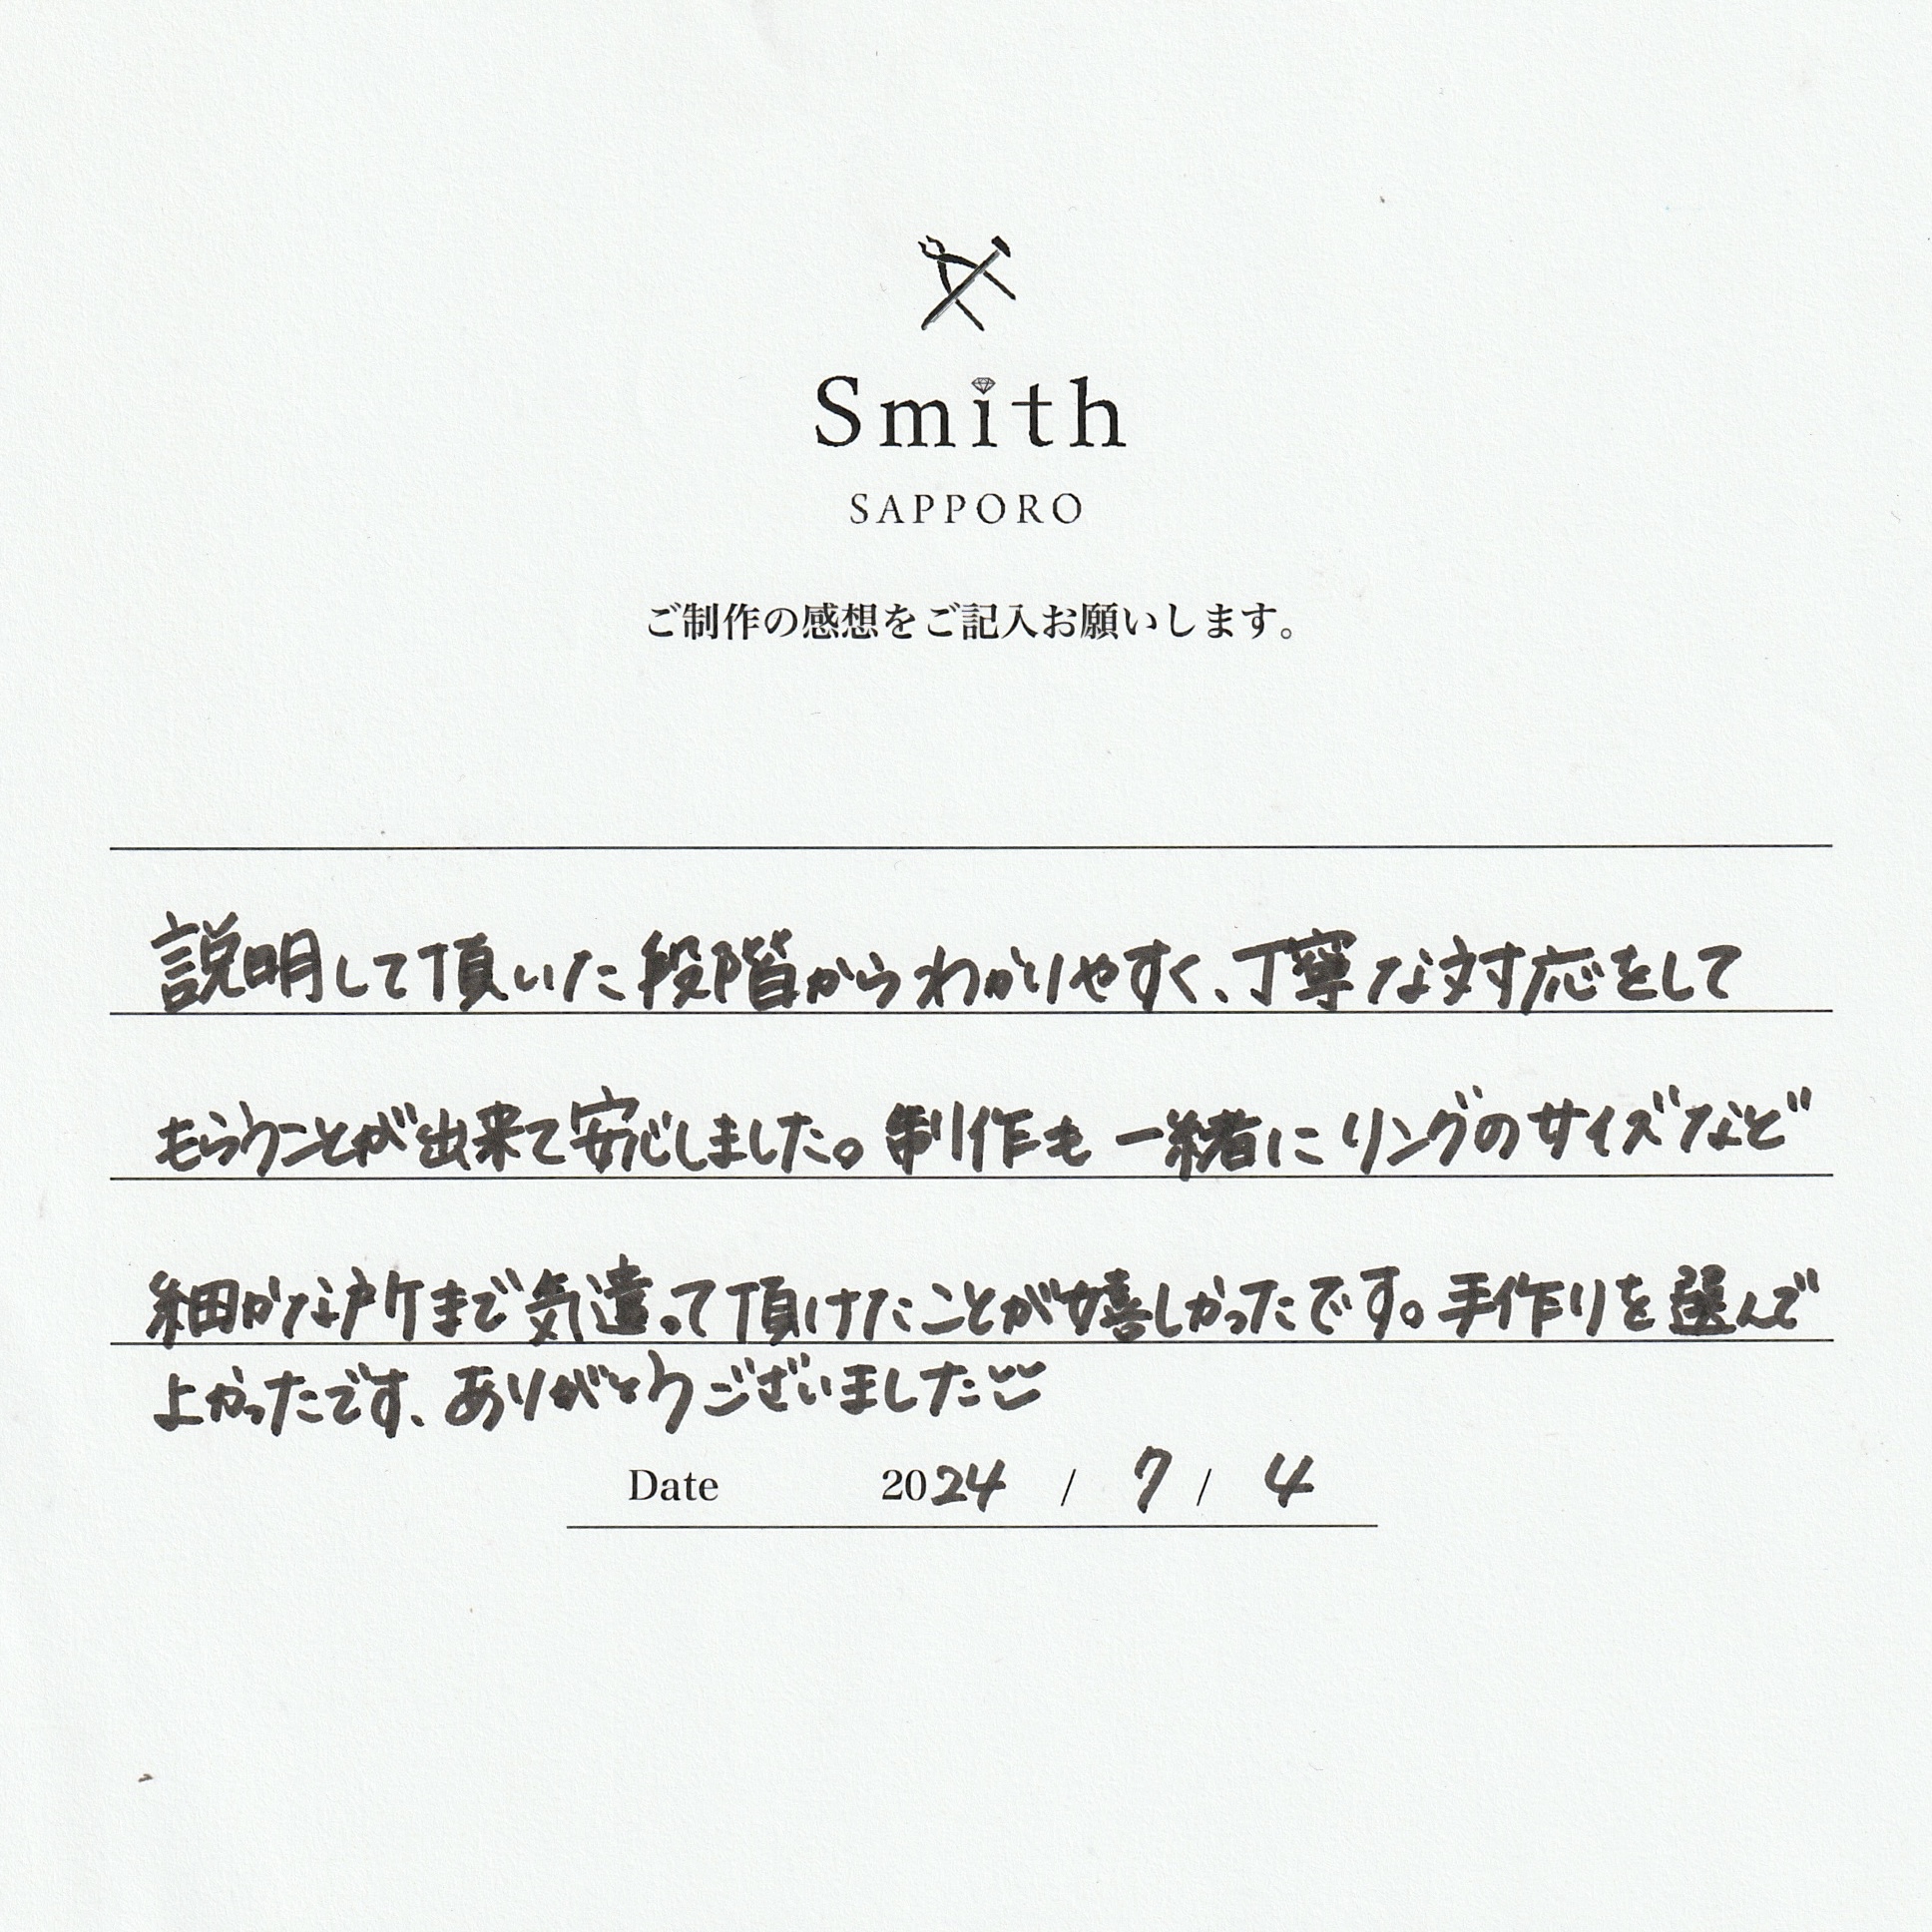 Smith
SAPPORO
ご制作の感想をご記入お願いします。
説明して頂いた段階からわかりやすく、丁寧な対応をして
もらうことが出来て安心しました。制作も一緒にリングのサイズなど
細かな所まで気遣って頂けたことが嬉しかったです。手作りを選んで
よかったです、ありがとうございました
Date 2024 / 7 / 4